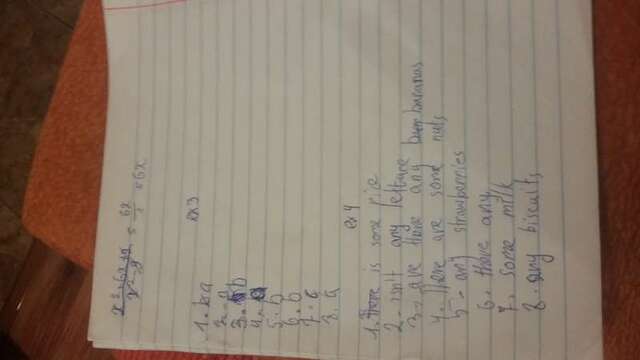 x²+6x+9 / x²-9 = 6x / 1 = 6x
ex3
1. ba
2. a
3. b
4. a
5. b
6. b
7. c
8. a
ex 4
1. There is some rice
2 - isn't any lettuce
3 - are there any bananas
4 - There are some nuts
5 - any strawberries
6. there any
7. some milk
8. any biscuits